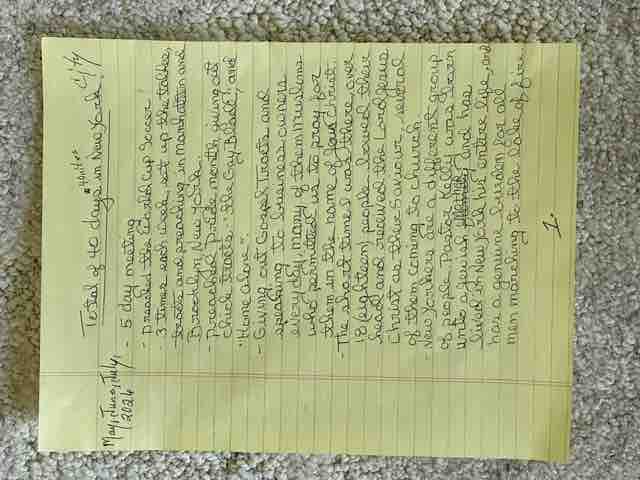 Total of 40 days in New York.
May, June, July,
2026
- 5 day meeting
- Preached the World Cup Soccer
- 3 times each week set up the table,
tracts and preaching in Manhattan and
Brooklyn, New York.
Preached Pride month, giving out
Chick tracts: The Gay Blade!, and
"Home alone".
- Giving out Gospel Tracts and
speaking to business owners
everyday, many of them Muslims
who permitted us to pray for
them in the name of Jesus Christ.
- The short time I was there, over
18 (eighteen) people bowed their
head and received the Lord Jesus
Christ as their Saviour, several
of them coming to church.
New Yorkers are a different group
of people. Pastor Kelly was born
unto a Jewish mother and has
lived in New York his entire life, and
has a genuine burden for all
men marching to the lake of fire.
1.